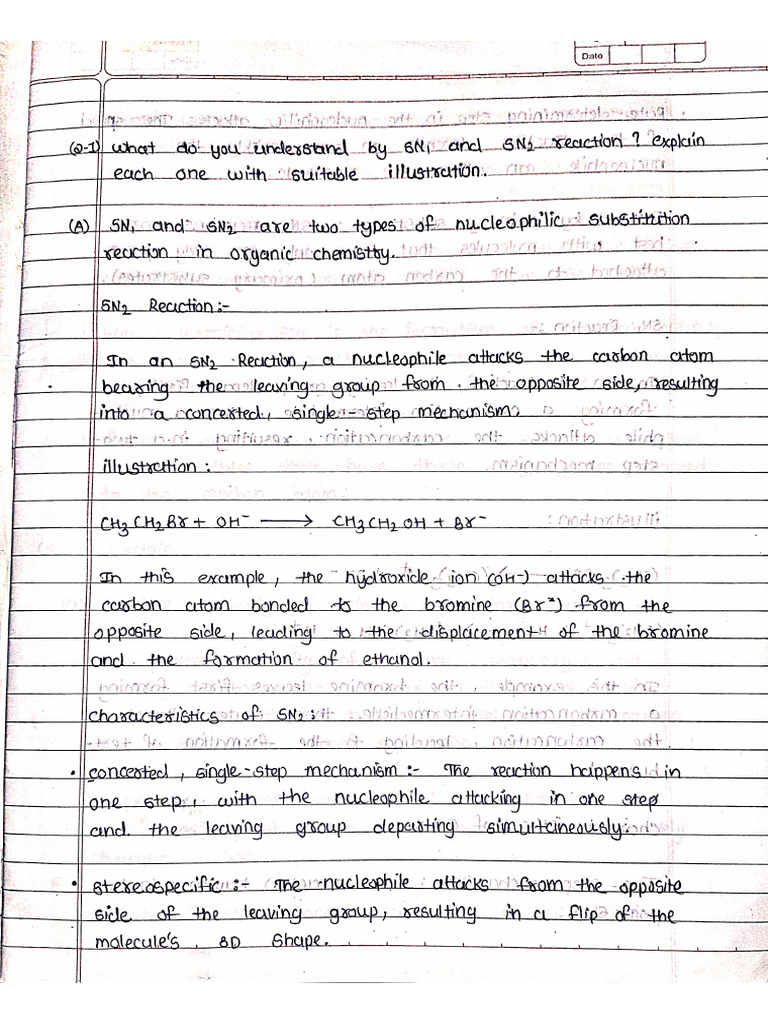 Date
(Q-1) What do you understand by SN₁ and SN₂ reaction ? explain
each one with suitable illustration.
(A) SN₁ and SN₂ are two types of nucleophilic substitution
reaction in organic chemistry.
SN₂ Reaction :-
In an SN₂ Reaction, a nucleophile attacks the carbon atom
bearing the leaving group from the opposite side, resulting
into a concerted, single-step mechanism.
illustration :
CH₃CH₂Br + OH⁻ ⟶ CH₃CH₂OH + Br⁻
In this example, the hydroxide ion (OH⁻) attacks the
carbon atom bonded to the bromine (Br⁻) from the
opposite side, leading to the displacement of the bromine
and the formation of ethanol.
characteristics of SN₂ :
• concerted, single-step mechanism :- The reaction happens in
one step, with the nucleophile attacking in one step
and the leaving group departing simultaneously.
• stereospecific :- The nucleophile attacks from the opposite
side of the leaving group, resulting in a flip of the
molecule's 3D shape.